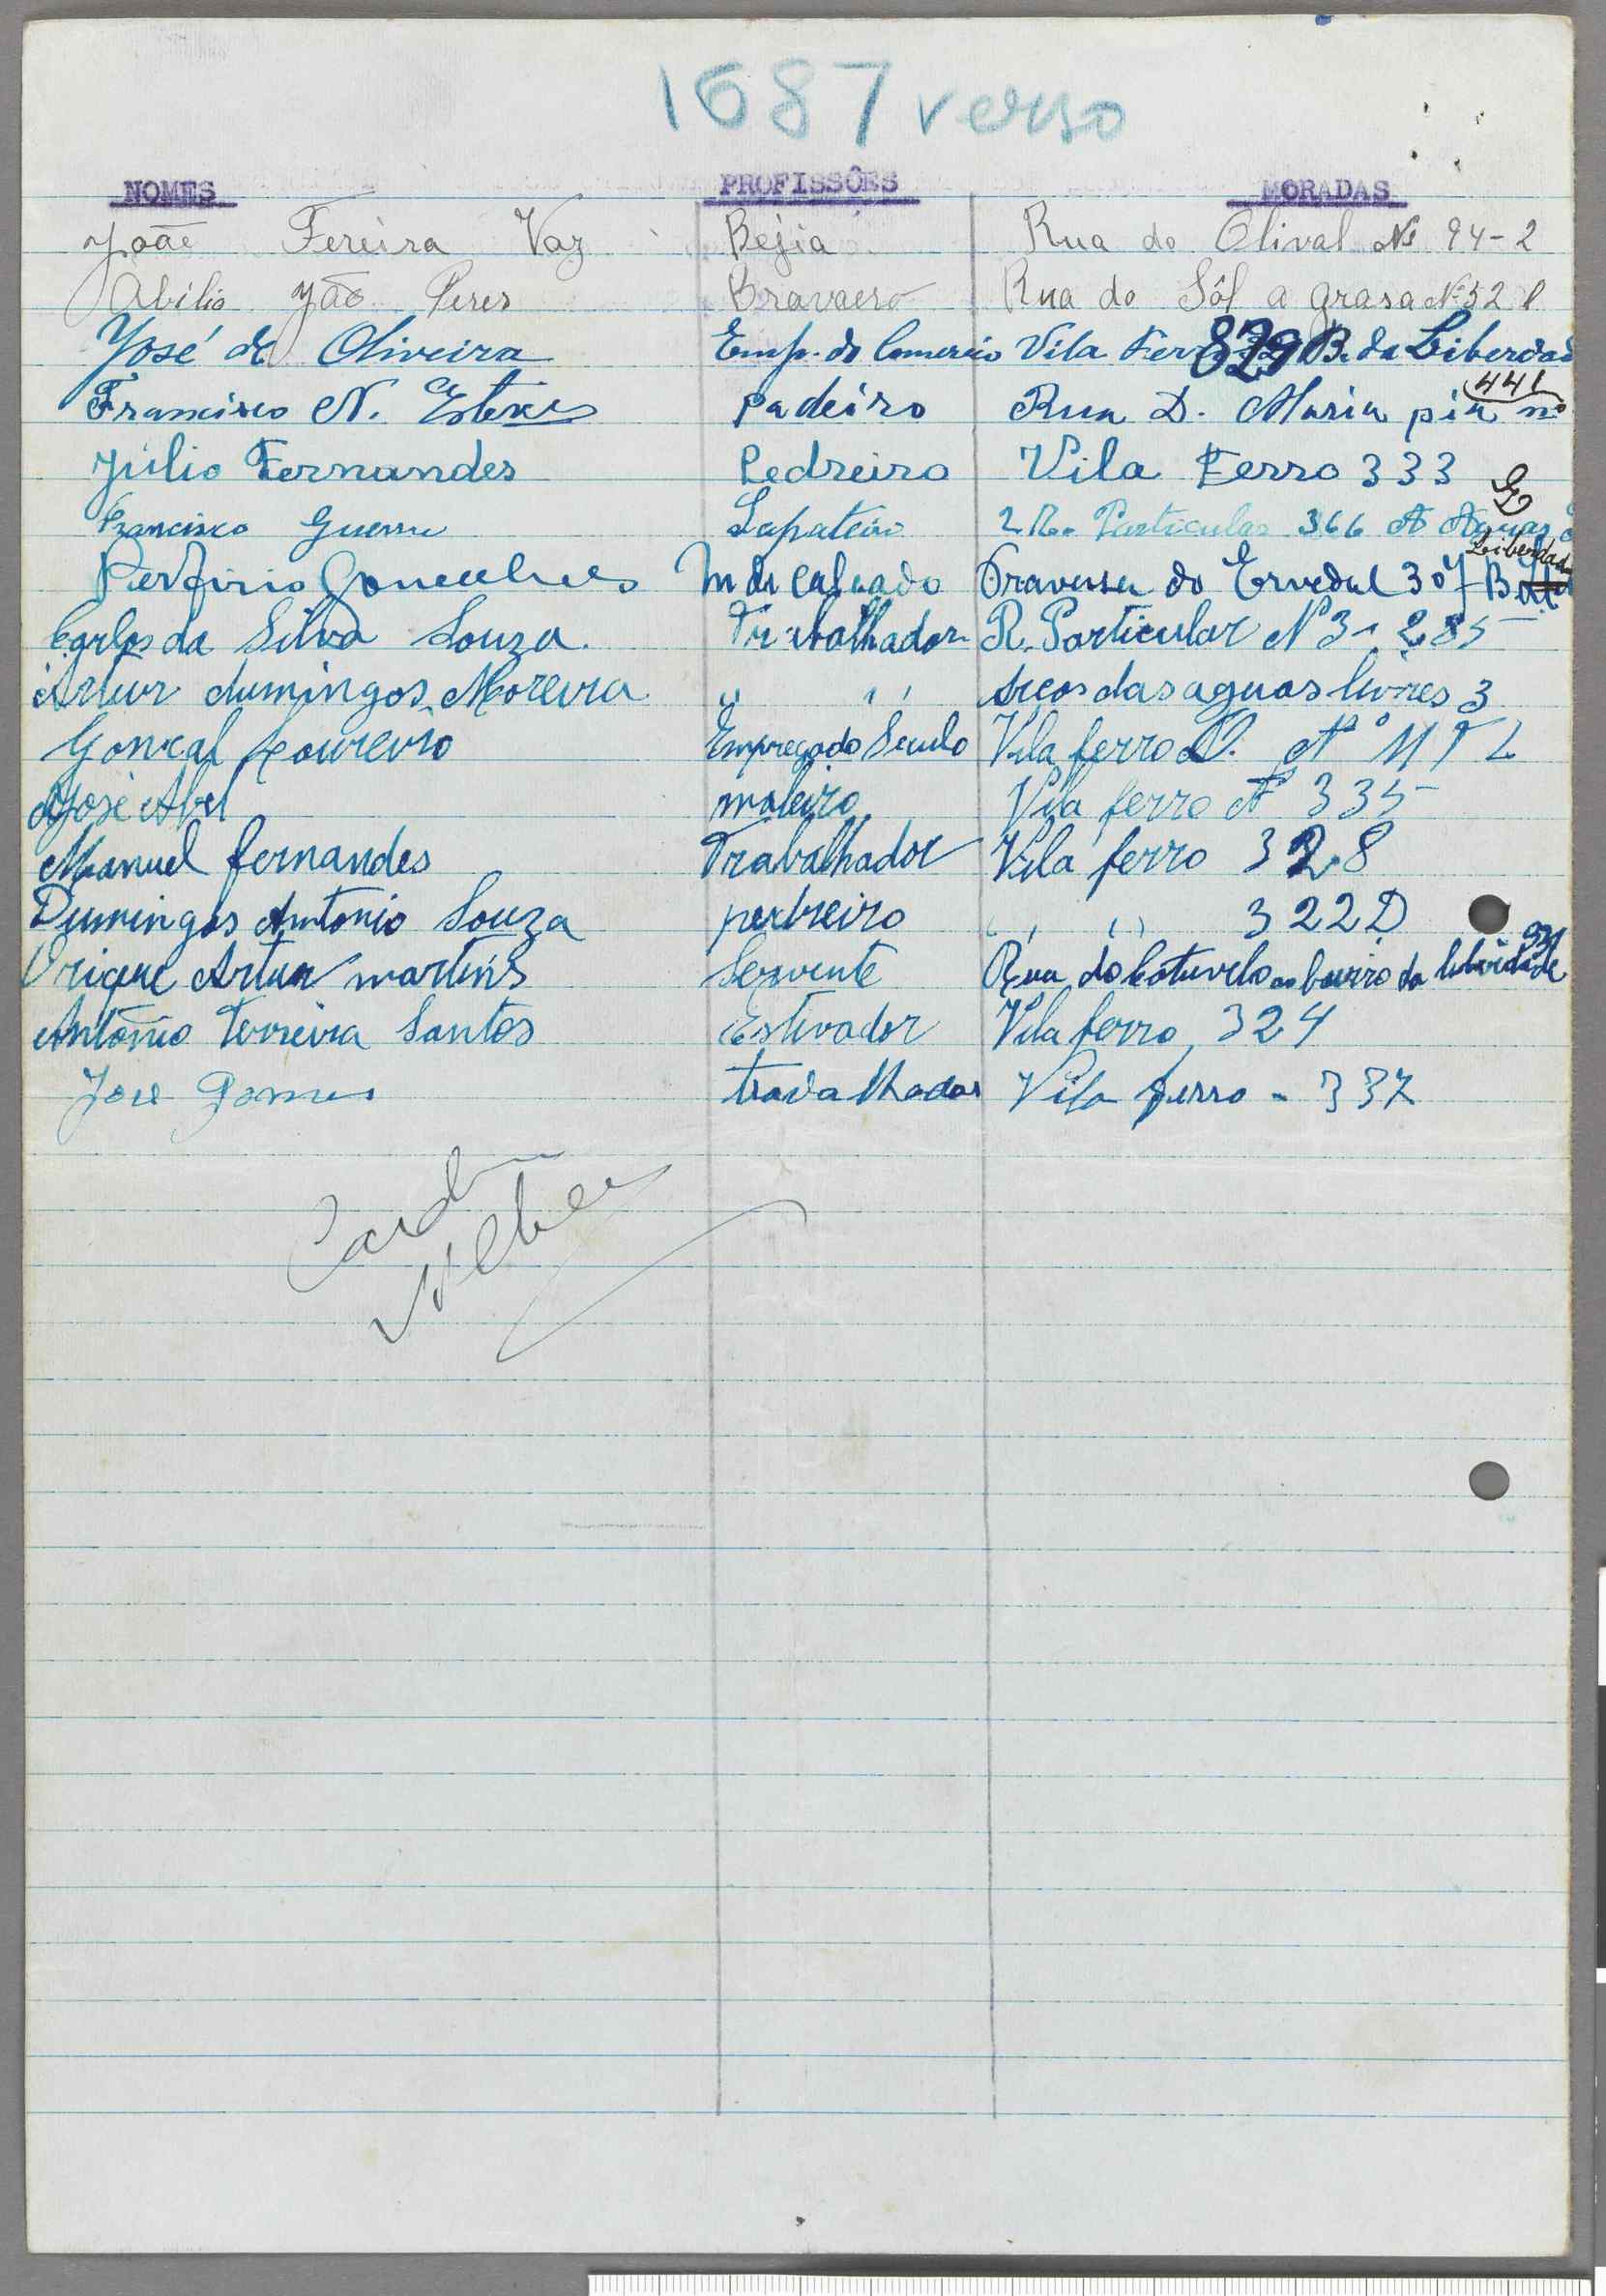 1687 verso
NOMES PROFISSÕES MORADAS
João Fereira Vaz Bejia Rua do Olival Nº 94-2
Abilio João Peres Rua do Sól a grasa Nº 52
José de Oliveira Emp. do Comercio Vila Ferro 829 B. da Liberdad
Francisco N. Esteves padeiro Rua D. Maria pia nº 441
Júlio Fernandes Pedreiro Vila Ferro 333
Francisco Guerra Sapateiro 2 R. Particular 366 A Aguas
Perfirio Goncalves M de Calcado Travessa do Ervedal 307 B Liberdade
Carlos da Silva Souza. Trabalhador R. Particular Nº 3 - 285
Artur dumingos Moreira " " arcos das aguas livres 3
Goncal Loureiro Empregado Seculo Vila ferro
José Abel Vila ferro Nº 335
Manuel fernandes Trabalhador Vila ferro 328
Dumingos Antonio Souza pedreiro " " 322D
Orique Artur martins Servente Rua do Cotuvelo ao bairro da liberdade 931
António Ferreira Santos Estivador Vila ferro 324
José Gomes travalhador Vila ferro - 337